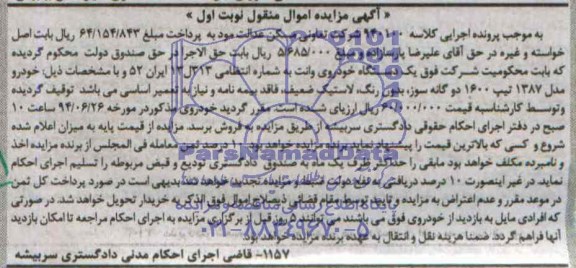 « آگهی مزایده اموال منقول نوبت اول »
به موجب پرونده اجرایی کلاسه شرکت تعاونی مسکن عدالت مود به پرداخت مبلغ ۶۴/۱۵۴/۸۴۳ ریال بابت اصل
خواسته و غیره در حق آقای علیرضا و مبلغ ۵/۶۸۵/۰۰۰ ریال بابت حق الاجرا در حق صندوق دولت محکوم گردیده
که بابت محکومیت شرکت فوق یک دستگاه خودروی وانت به شماره انتظامی ایران ۵۲ و با مشخصات ذیل: خودرو
مدل ۱۳۸۷ تیپ ۱۶۰۰ دو گانه سوز، بدون رنگ، لاستیک ضعیف، فاقد بیمه نامه و نیاز به تعمیر اساسی می باشد توقیف گردیده
وتوسط کارشناسبه قیمت ریال ارزیابی شده است مقرر گردید خودروی مذکوردر مورخه ۹۴/۰۶/۲۶ ساعت ۱۰
صبح در دفتر اجرای احکام حقوقی دادگستری سربیشه از طریق مزایده به فروش برسد. مزایده از قیمت پایه به میزان اعلام شده
شروع و کسی که بالاترین قیمت را پیشنهاد نماید برنده مزایده خواهد بود. ۱۰ درصد ثمن معامله فی المجلس از برنده مزایده اخذ
و نامبرده مکلف خواهد بود مابقی را حداکثر یک ماه به صندوق دادگستری تودیع و قبض مربوطه را تسلیم اجرای احکام
نماید. در غیر اینصورت ۱۰ درصد دریافتی به نفع دولت ضبط و مزایده تجدید خواهد شد. بدیهی است در صورت پرداخت کل ثمن
در موعد مقرر و عدم اعتراض به مزایده و تایید توسط مقام قضایی ذیصلاح اموال فوق الذکر به خریدار تحویل خواهد شد. در صورتی
که افرادی مایل به بازدید از خودروی فوق می باشند می توانند ۵ روز قبل از برگزاری مزایده به اجرای احکام مراجعه تا امکان بازدید
آنها فراهم گردد. ضمنا هزینه نقل و انتقال به عهده برنده مزایده خواهد بود.
۱۱۵۷- قاضی اجرای احکام مدنی دادگستری سربیشه
ParsNamadData
۰۲۱-۸۸۳۴۹۶۷۰-۵